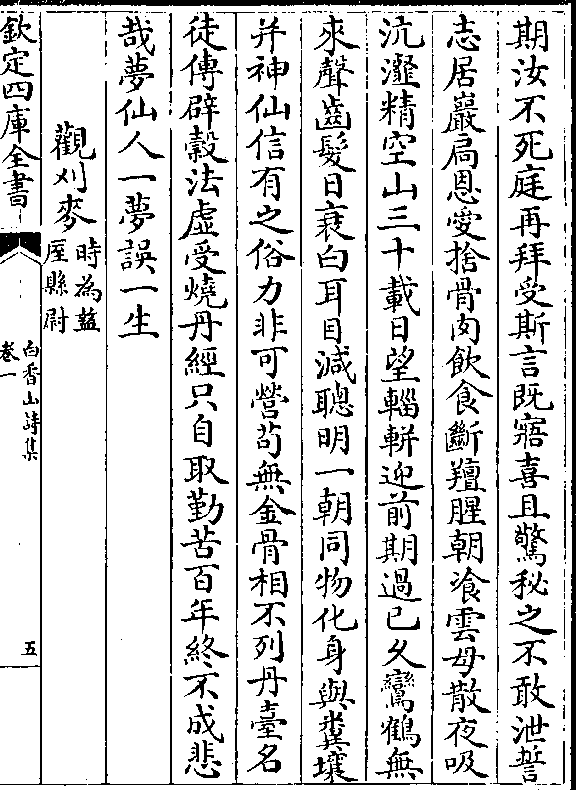 期汝不死庭再拜受斯言既寤喜且驚秘之不敢泄誓
志居巖扃恩愛捨骨肉飲食斷羶腥朝飡雲母散夜吸
沆瀣精空山三十載日望輜軿迎前期過已久鸞鶴無
來聲齒髮日衰白耳目減聰明一朝同物化身與糞壤
并神仙信有之俗力非可營苟無金骨相不列丹臺名
徒傳辟穀法虛受燒丹經只自取勤苦百年終不成悲
哉夢仙人一夢誤一生
觀刈麥時為盩
厔縣尉
欽定四庫全書
白香山詩集
卷一
五